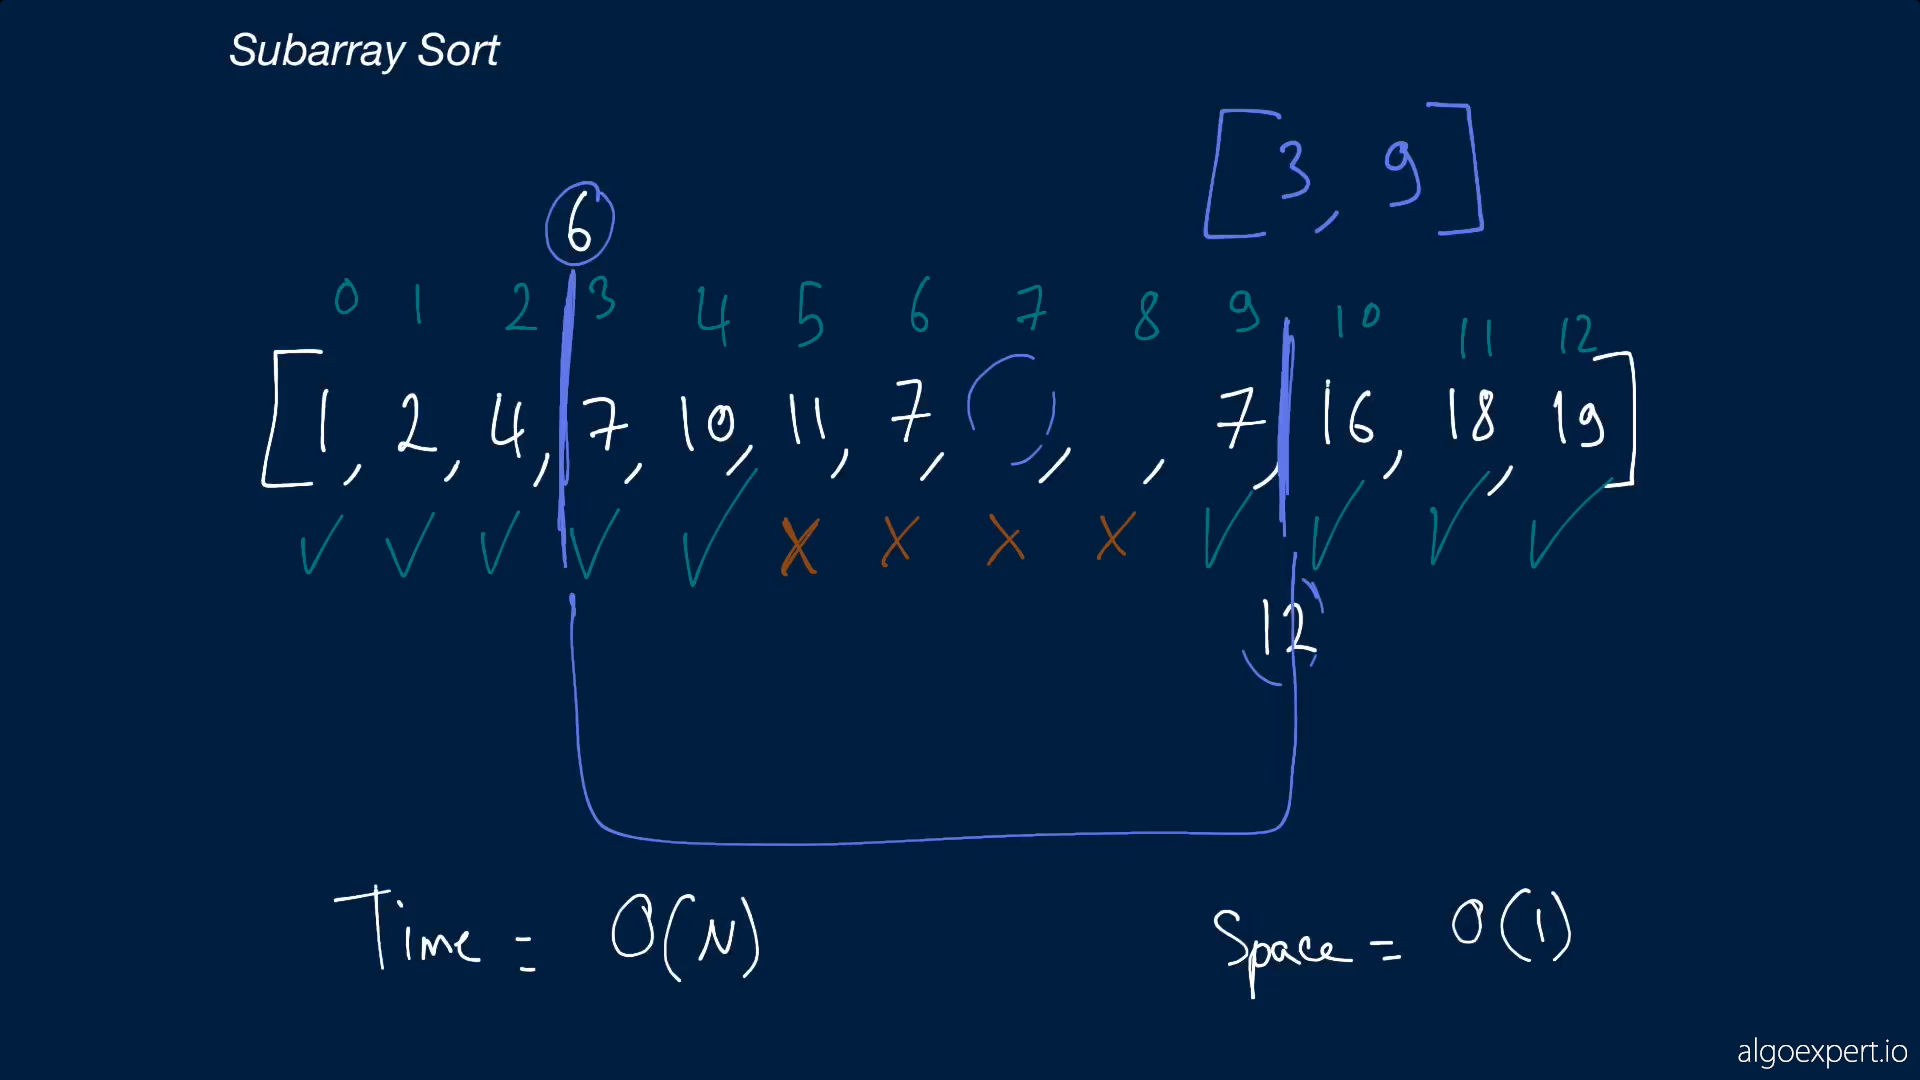 Subarray Sort
[3, 9]
6
0 1 2 3 4 5 6 7 8 9 10 11 12
[1, 2, 4, 7, 10, 11, 7, , , 7, 16, 18, 19]
12
Time = O(N) Space = O(1)
algoexpert.io